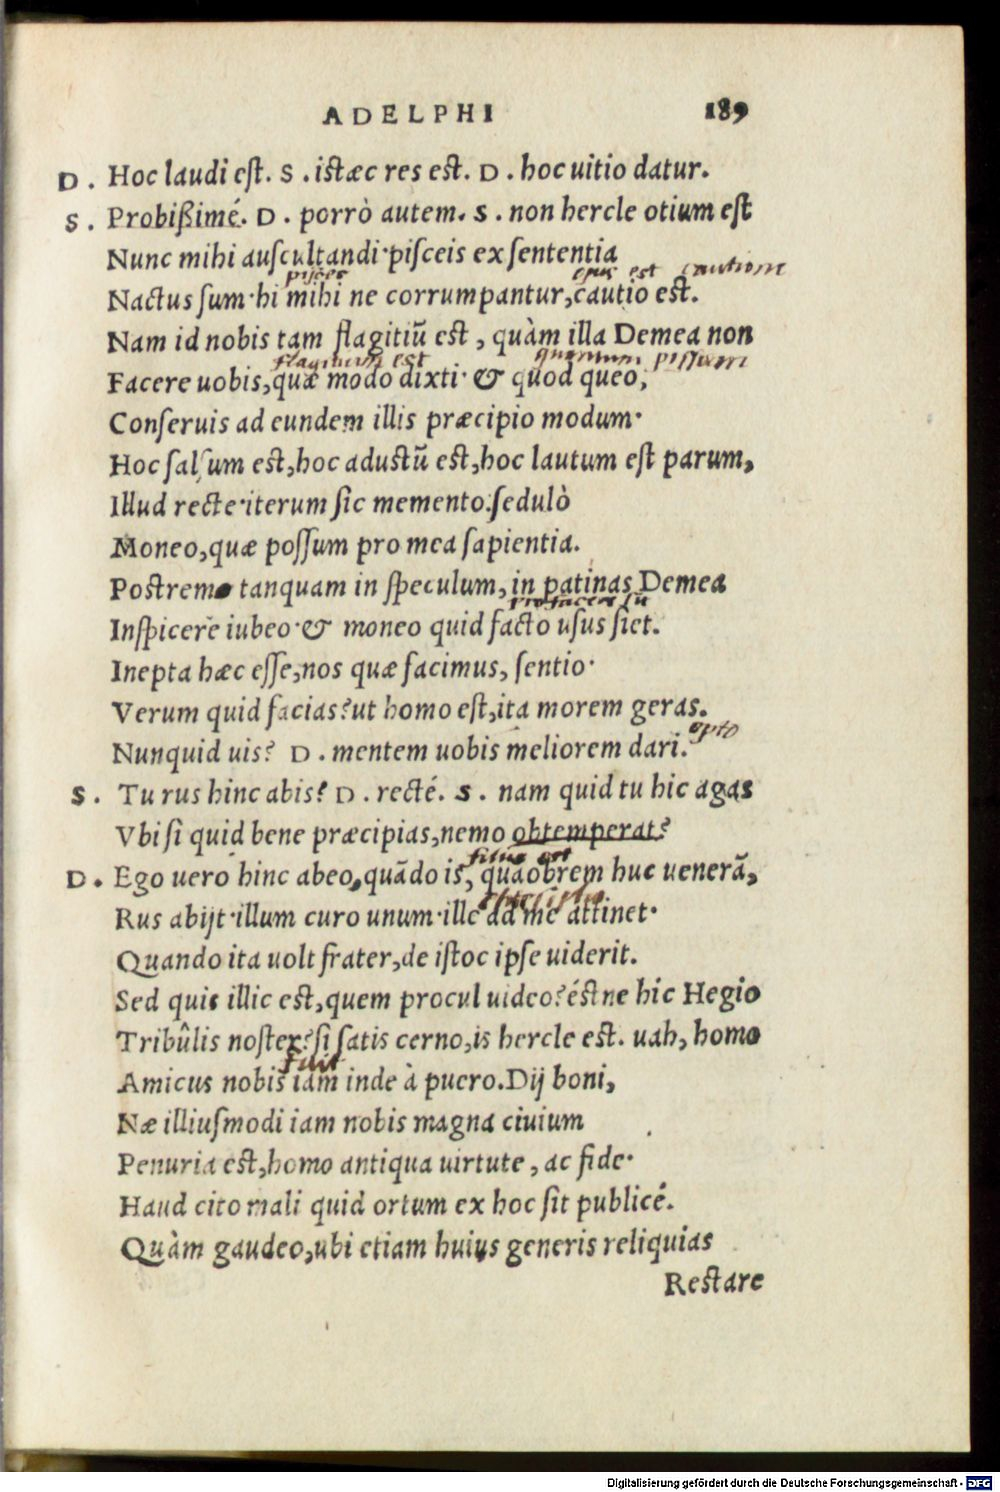 ADELPHI 189
D. Hoc laudi est. S. istæc res est. D. hoc uitio datur.
S. Probißimé. D. porrò autem. S. non hercle otium est
Nunc mihi auscultandi·pisceis ex sententia
pisces opus est cautione
Nactus sum·hi mihi ne corrumpantur, cautio est.
Nam id nobis tam flagitiũ est, quàm illa Demea non
flagitium est quantum possum
Facere uobis, quæ modo dixti·& quod queo,
Conseruis ad eundem illis præcipio modum·
Hoc salsum est, hoc adustũ est, hoc lautum est parum,
Illud recte·iterum sic memento.sedulò
Moneo, quæ possum pro mea sapientia.
Postremo tanquam in speculum, in patinas Demea
Inspicere iubeo·& moneo quid facto usus siet.
Inepta hæc esse, nos quæ facimus, sentio·
Verum quid facias? ut homo est, ita morem geras.
opto
Nunquid uis? D. mentem uobis meliorem dari.
S. Tu rus hinc abis? D. recté. S. nam quid tu hic agas
Vbi si quid bene præcipias, nemo obtemperat?
filius est
D. Ego uero hinc abeo, quãdo is, quaobrem huc uenerã,
Rus abijt·illum curo unum·ille ad me attinet·
Quando ita uolt frater, de istoc ipse uiderit.
Sed quis illic est, quem procul uideo? éstne hic Hegio
Tribûlis noster? si satis cerno, is hercle est. uah, homo
fuit
Amicus nobis iam inde à puero. Dij boni,
Næ illiusmodi iam nobis magna ciuium
Penuria est, homo antiqua uirtute, ac fide·
Haud cito mali quid ortum ex hoc sit publicé.
Quàm gaudeo, ubi etiam huius generis reliquias
Restare
Digitalisierung gefördert durch die Deutsche Forschungsgemeinschaft - DFG